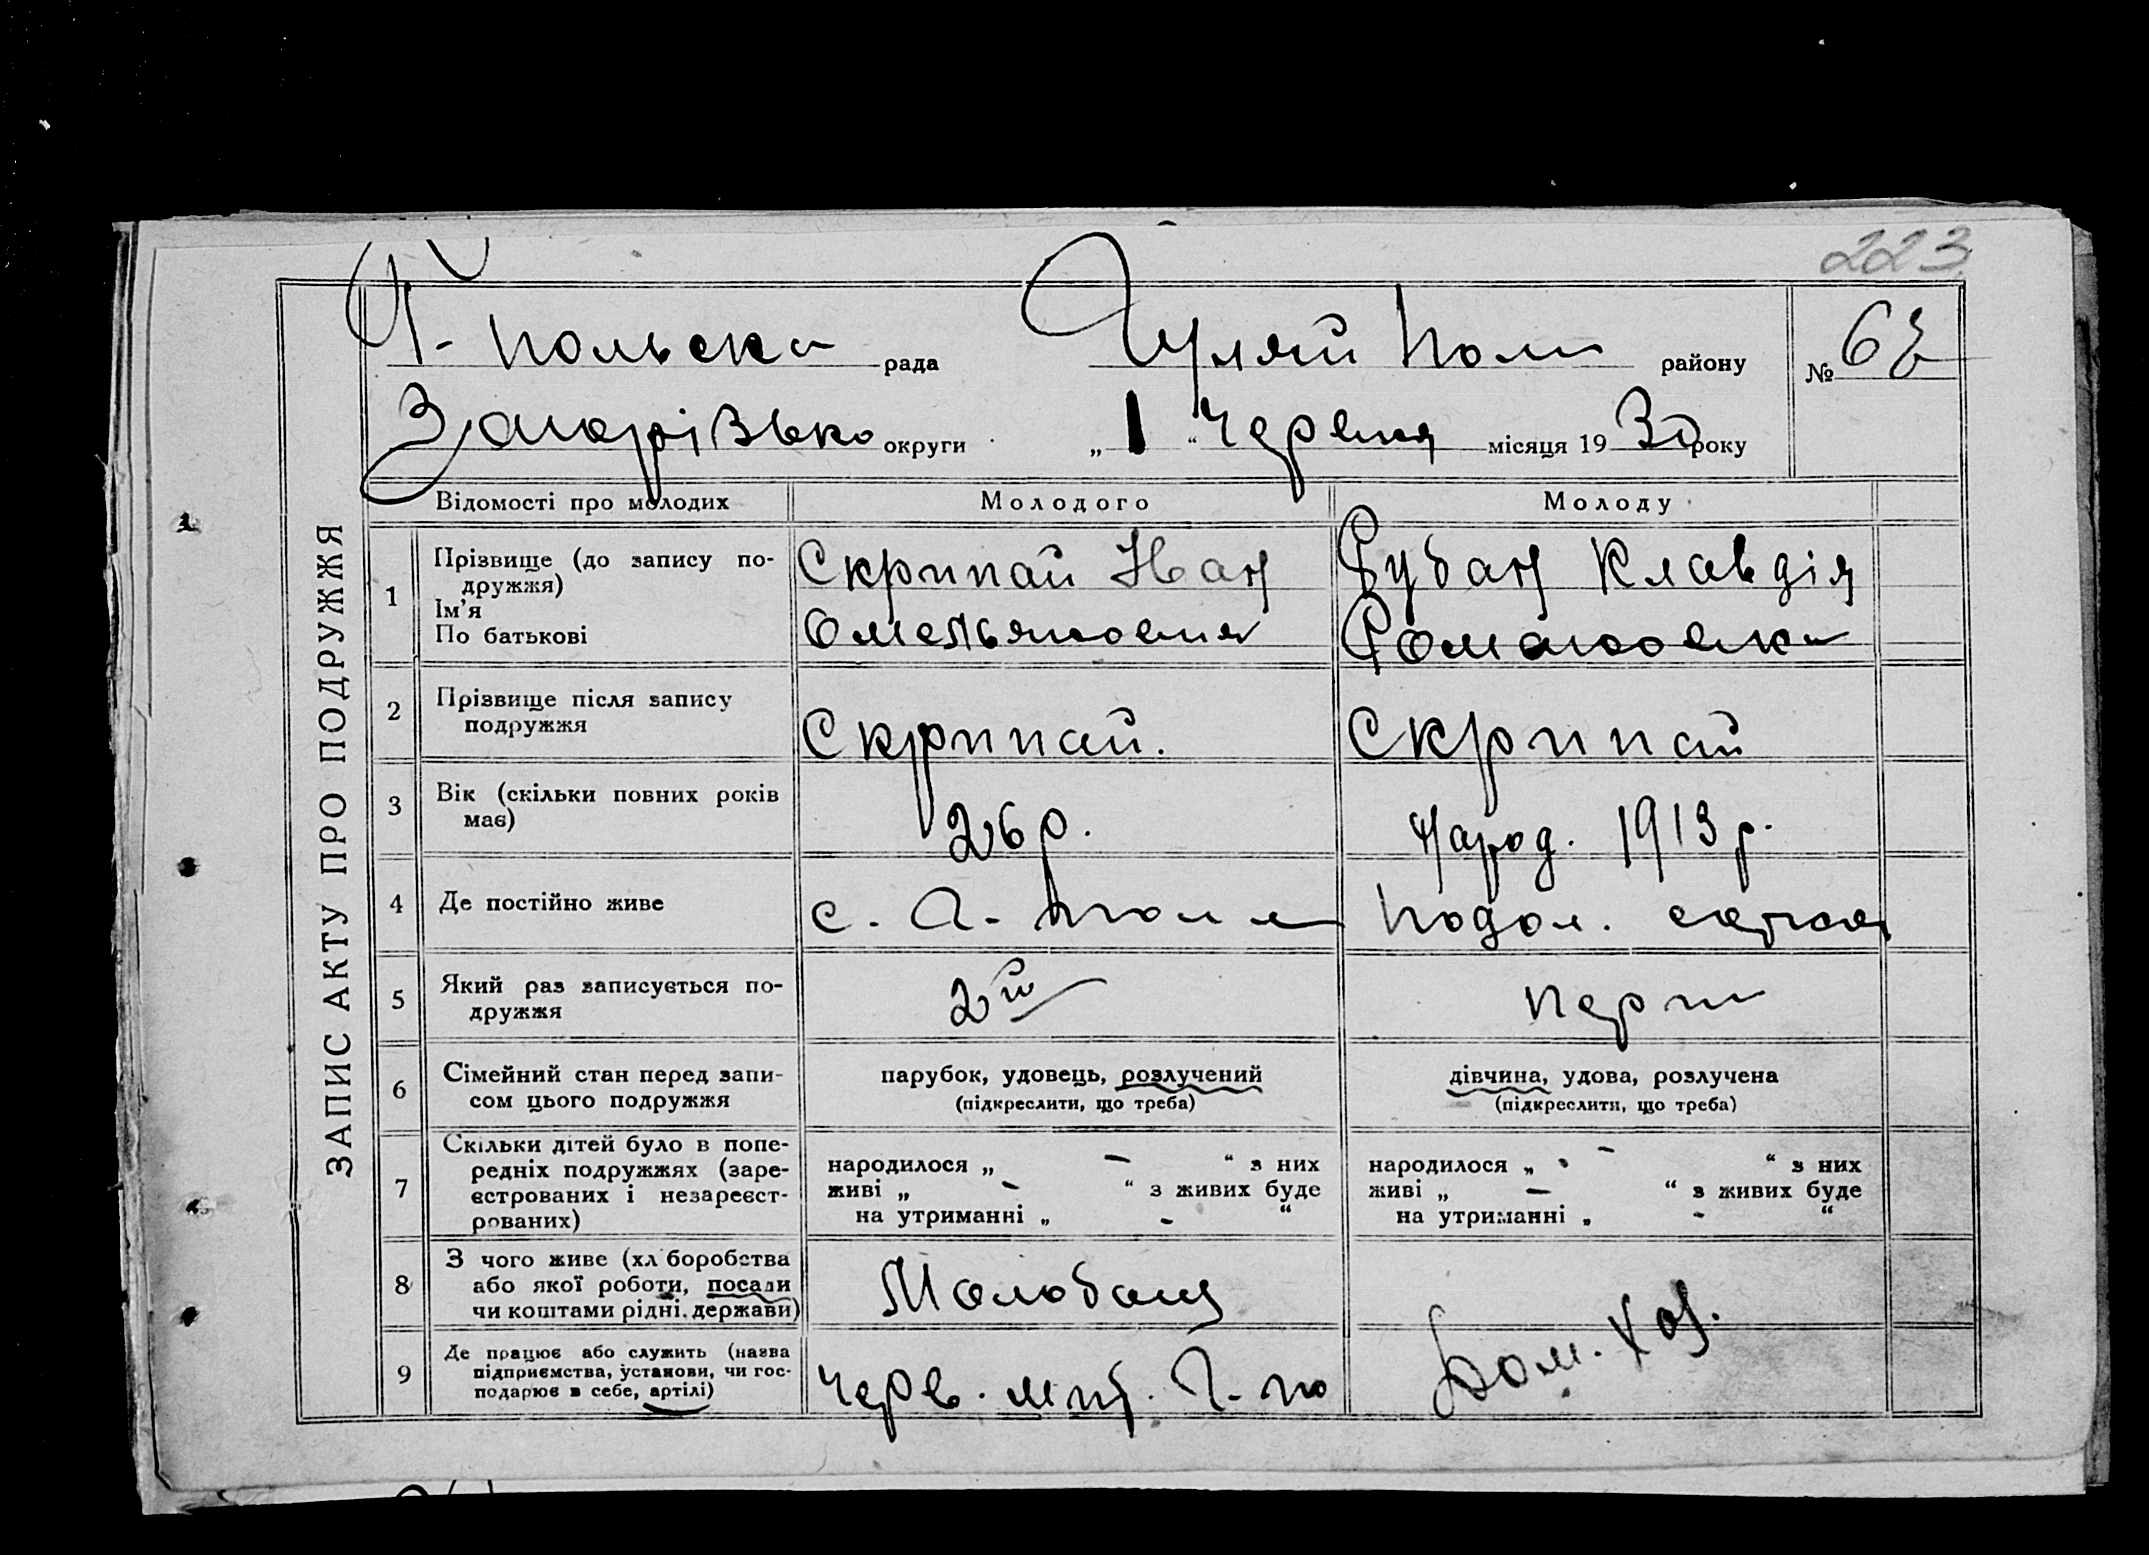 223
Г-Польска рада Гуляй Поли району № 62
Запорізько округи „1“ Червня місяця 1930 року
ЗАПИС АКТУ ПРО ПОДРУЖЖЯ
Відомості про молодих Молодого Молоду
1 Прізвище (до запису по-
дружжя)
Ім’я
По батькові
Скрипай Іван
Омельянович
Рубан Клавдія
Романовна
2 Прізвище після запису
подружжя
Скрипай. Скрипай
3 Вік (скільки повних років
має)
26 р. Народ. 1913 р.
4 Де постійно живе с. Г. Поли Подол.
5 Який раз записується по-
дружжя
2й перши
6 Сімейний стан перед запи-
сом цього подружжя
парубок, удовець, розлучений
(підкреслити, що треба)
дівчина, удова, розлучена
(підкреслити, що треба)
7 Скільки дітей було в попе-
редніх подружжях (заре-
єстрованих і незареєст-
рованих)
народилося „ — “ з них
живі „ - “ з живих буде
на утриманні „ - “
народилося „ - “ з них
живі „ — “ з живих буде
на утриманні „ - “
8 З чого живе (хліборобства
або якої роботи, посади
чи коштами рідні. держави)
9 Де працює або служить (назва
підприємства, установи, чи гос-
подарює в себе, артілі)
Черв. Г-по
Дом. Хоз.